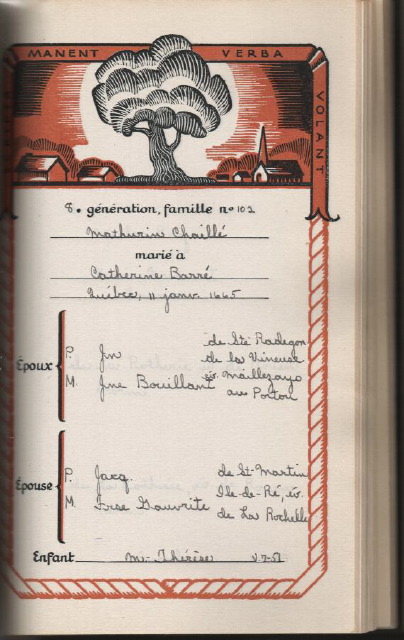 MANENT VERBA VOLANT
8e génération, famille no 102
Mathurin Chaillé
marié à
Catherine Barré
Québec, 11 janv. 1665
Époux
P. Jn
de Ste Radegon
de la Vineuse
M. Jne Bouillant
év. Maillezays
au Poitou
Épouse
P. Jacq
de St-Martin
Ile-de-Ré, év.
M. Gouvrite
de La Rochelle
Enfant M- Thérèse V-7-51